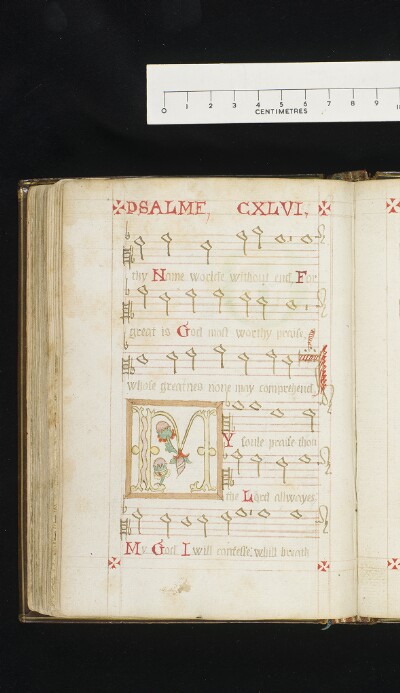 0 1 2 3 4 5 6 7 8 9
CENTIMETRES
PSALME, CXLVI,
thy Name worship without end, For
great is God most worthy praise,
whose greatnes none may comprehend,
MY soule praise thou
the Lord allwayes
My God I will confesse, whilst breath